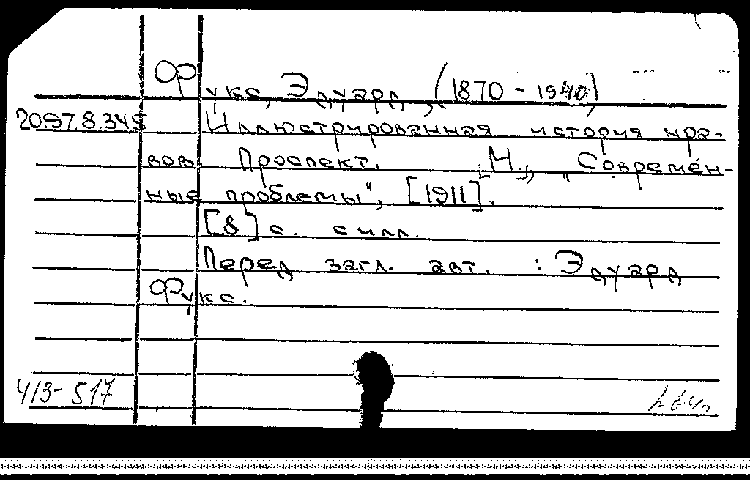 Фукс, Эдуард, (1870 - 1940)
20.97.8.345 Иллюстрированная история нра-
вов Проспект. М., "Современ-
ные проблемы", [1911].
[8] с. с илл.
Перед загл. авт. : Эдуард
Фукс.
413-517